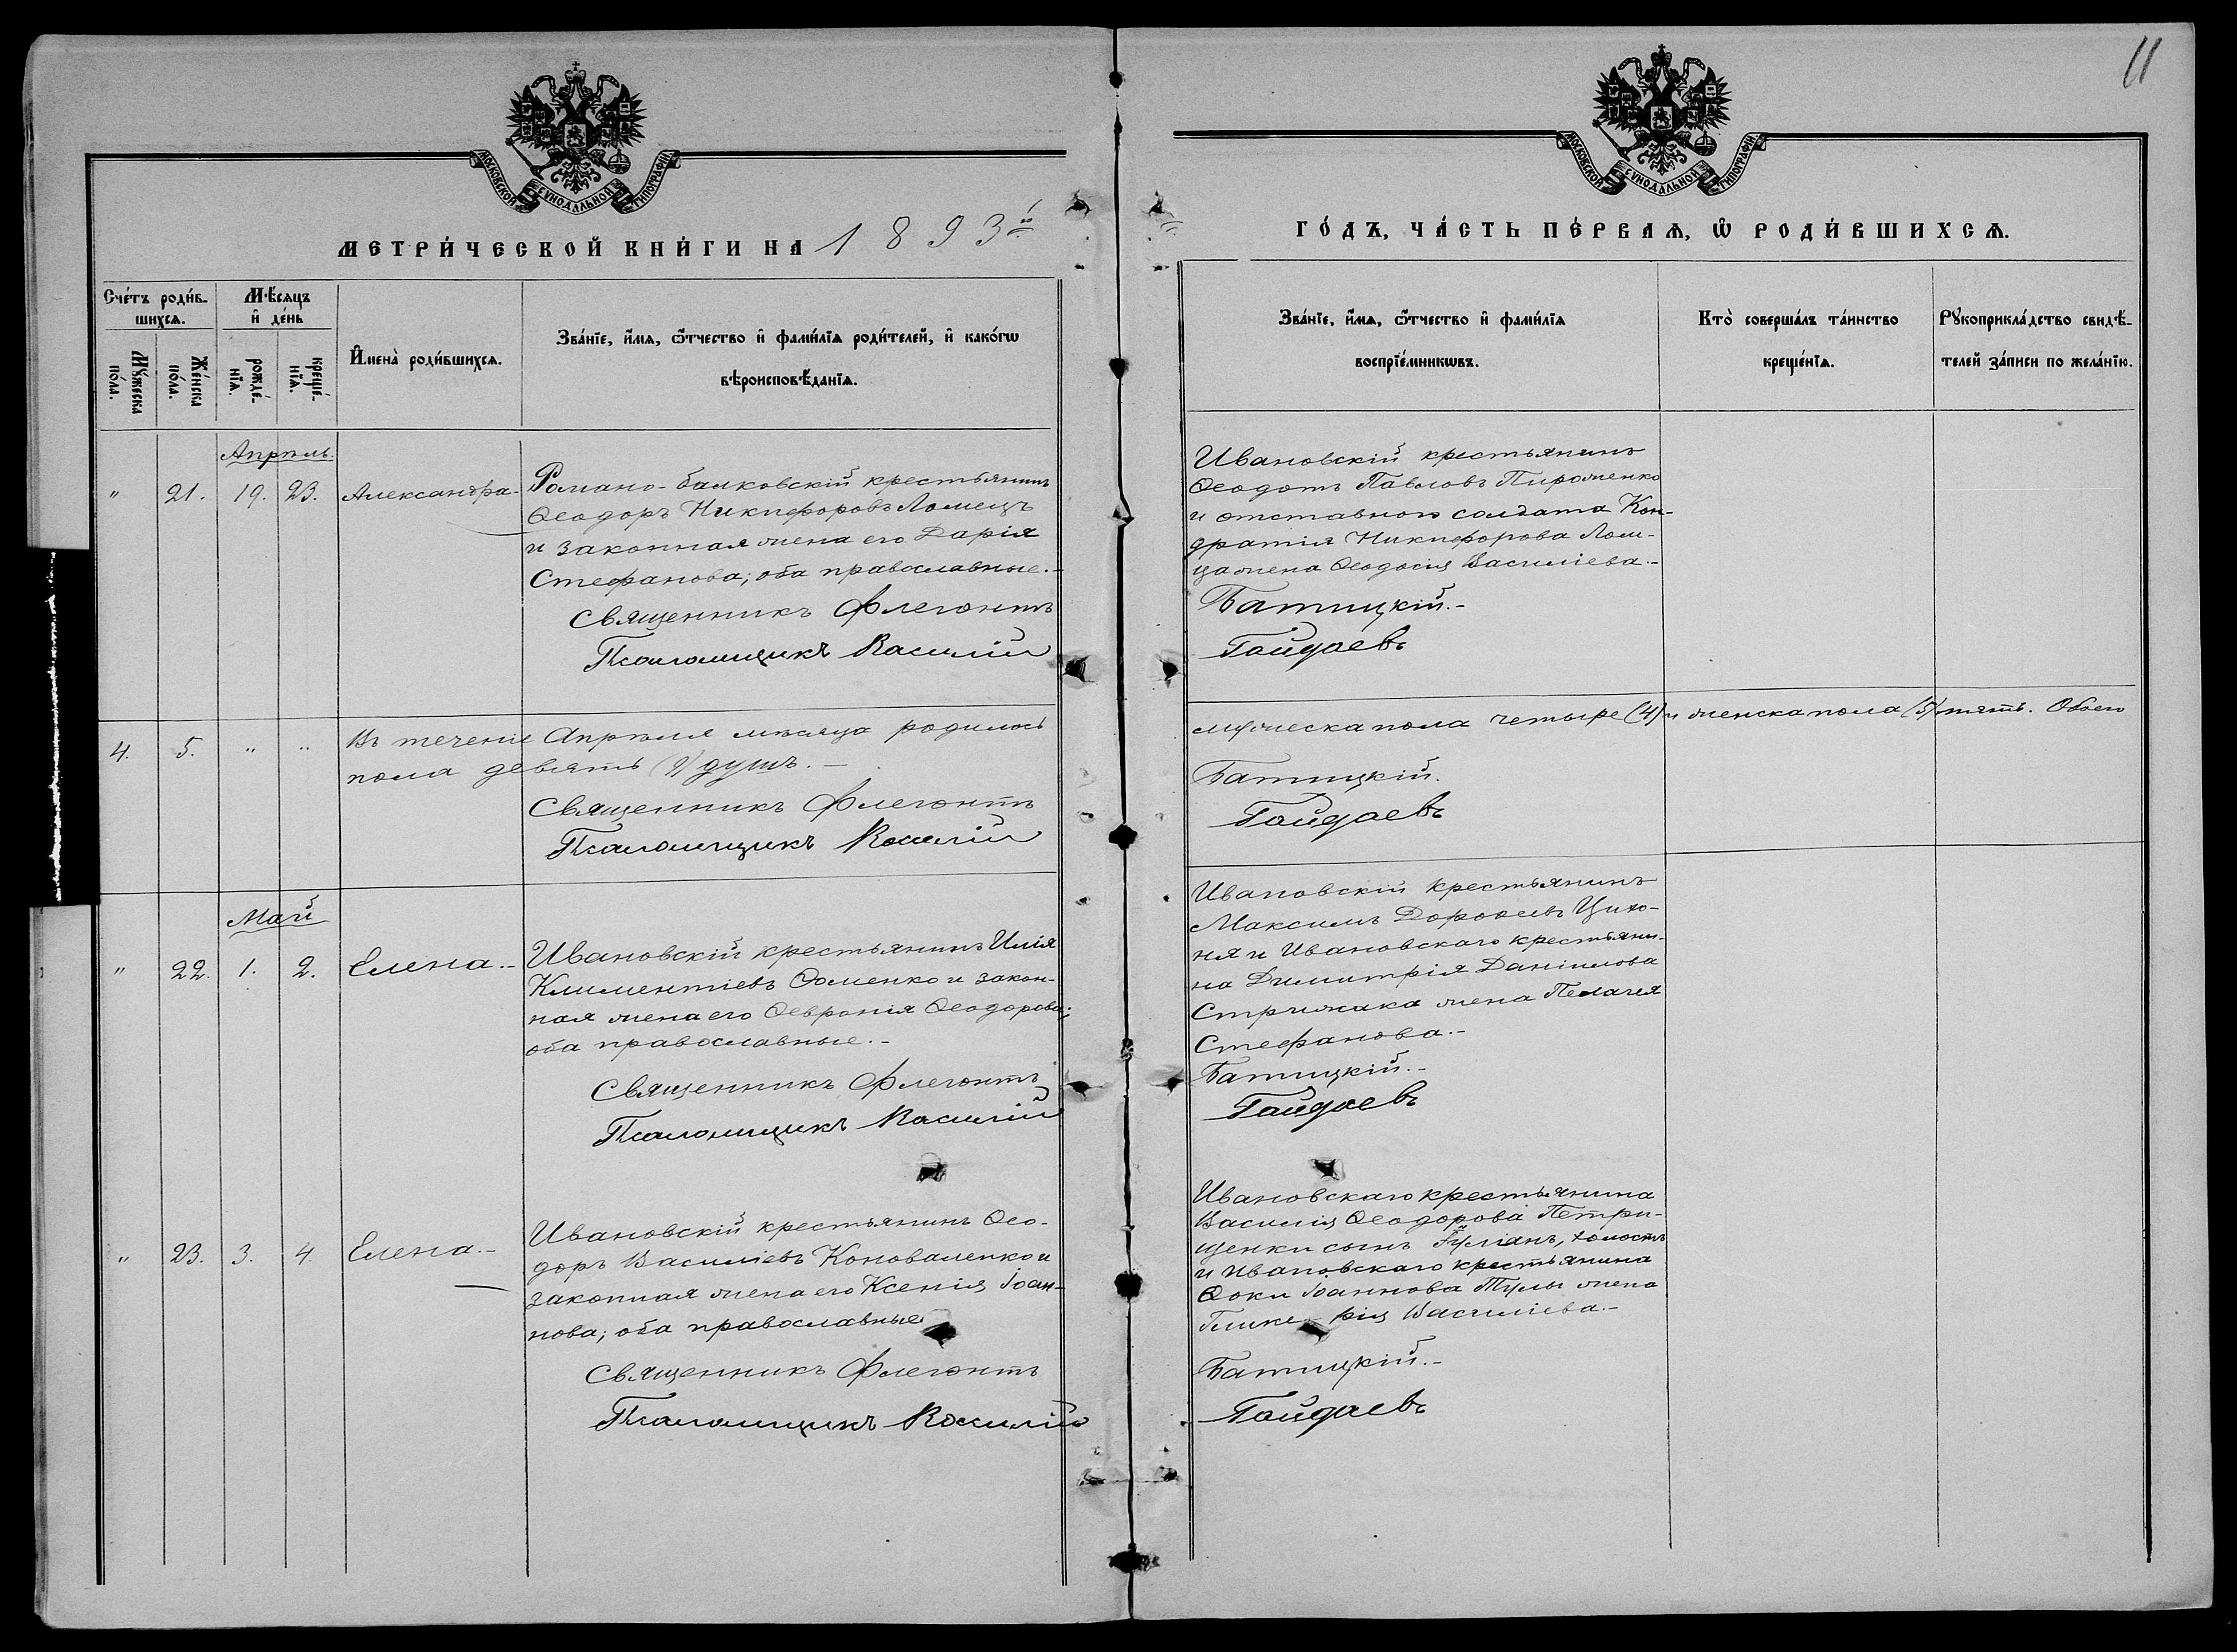 11
МОСКОВСКОЙ СѴНОДАЛЬНОЙ ТИПОГРАФІИ
МОСКОВСКОЙ СѴНОДАЛЬНОЙ ТИПОГРАФІИ
МЕТРИ́ЧЕСКОЙ КНИ́ГИ НА 1893й
ГО́ДЪ, ЧА́СТЬ ПЕ́РВАѦ, Ѡ҆ РОДИ́ВШИХСѦ.
Сче́тъ роди́в-
шихсѧ.
Мꙋ́жеска
по́ла.
Же́нска
по́ла.
Мѣ́сѧцъ
и҆ де́нь
рожде́-
нїѧ.
креще́-
нїѧ.
И҆мена̀ роди́вшихсѧ.
Зва́нїе, и҆́мѧ, ѻ҆́тчество и҆ фами́лїѧ роди́телей, и҆ како́гѡ
вѣроисповѣ́данїѧ.
Зва́нїе, и҆́мѧ, ѻ҆́тчество и҆ фами́лїѧ
воспрїе́мникѡвъ.
Кто̀ соверша́лъ та́инство
креще́нїѧ.
Рꙋкоприкла́дство свидѣ́-
телей за́писи по жела́нїю.
Апрѣль.
" 21. 19. 23. Александра.
Романо-балковскій крестьянинъ
Ѳеодоръ Никифоровъ Ломецъ
и законная жена его Дарія
Стефанова; оба православные.-
Священникъ Флегонтъ
Псаломщикъ Василій
Ивановскій крестьянинъ
Ѳеодотъ Павловъ Пироженко
и отставного солдата Кон-
дратія Никифорова Лом-
ца жена Ѳеодосія Василіева.-
Батицкій.-
Гайдаевъ
4. 5. " " Въ теченіе Апрѣля мѣсяца родилось
мужеска пола четыре (4) и женска пола (5) пять. Обоего
пола девять (9) душъ.-
Священникъ Флегонтъ
Псаломщикъ Василій
Батицкій.
Гайдаевъ
Май
" 22. 1. 2. Елена.-
Ивановскій крестьянинъ Илія
Климентіевъ Ѳоменко и закон-
ная жена его Ѳевронія Ѳеодорова;
оба православные.-
Священникъ Флегонтъ
Псаломщикъ Василій
Ивановскій крестьянинъ
Максимъ Дороѳеевъ Цихо-
ня и Ивановскаго крестьяни-
на Димитрія Даніилова
Стрижака жена Пелагея
Стефанова.-
Батицкій.-
Гайдаевъ
" 23. 3. 4. Елена.-
Ивановскій крестьянинъ Ѳео-
доръ Василіевъ Коноваленко и
законная жена его Ксенія Іоан-
нова; оба православные
Священникъ Флегонтъ
Псаломщикъ Василій
Ивановскаго крестьянина
Василія Ѳеодорова Петри-
щенки сынъ Іуліанъ, холостъ
и Ивановскаго крестьянина
Ѳоки Іоаннова Тулы жена
Глике-рія Василіева.-
Батицкій.-
Гайдаевъ